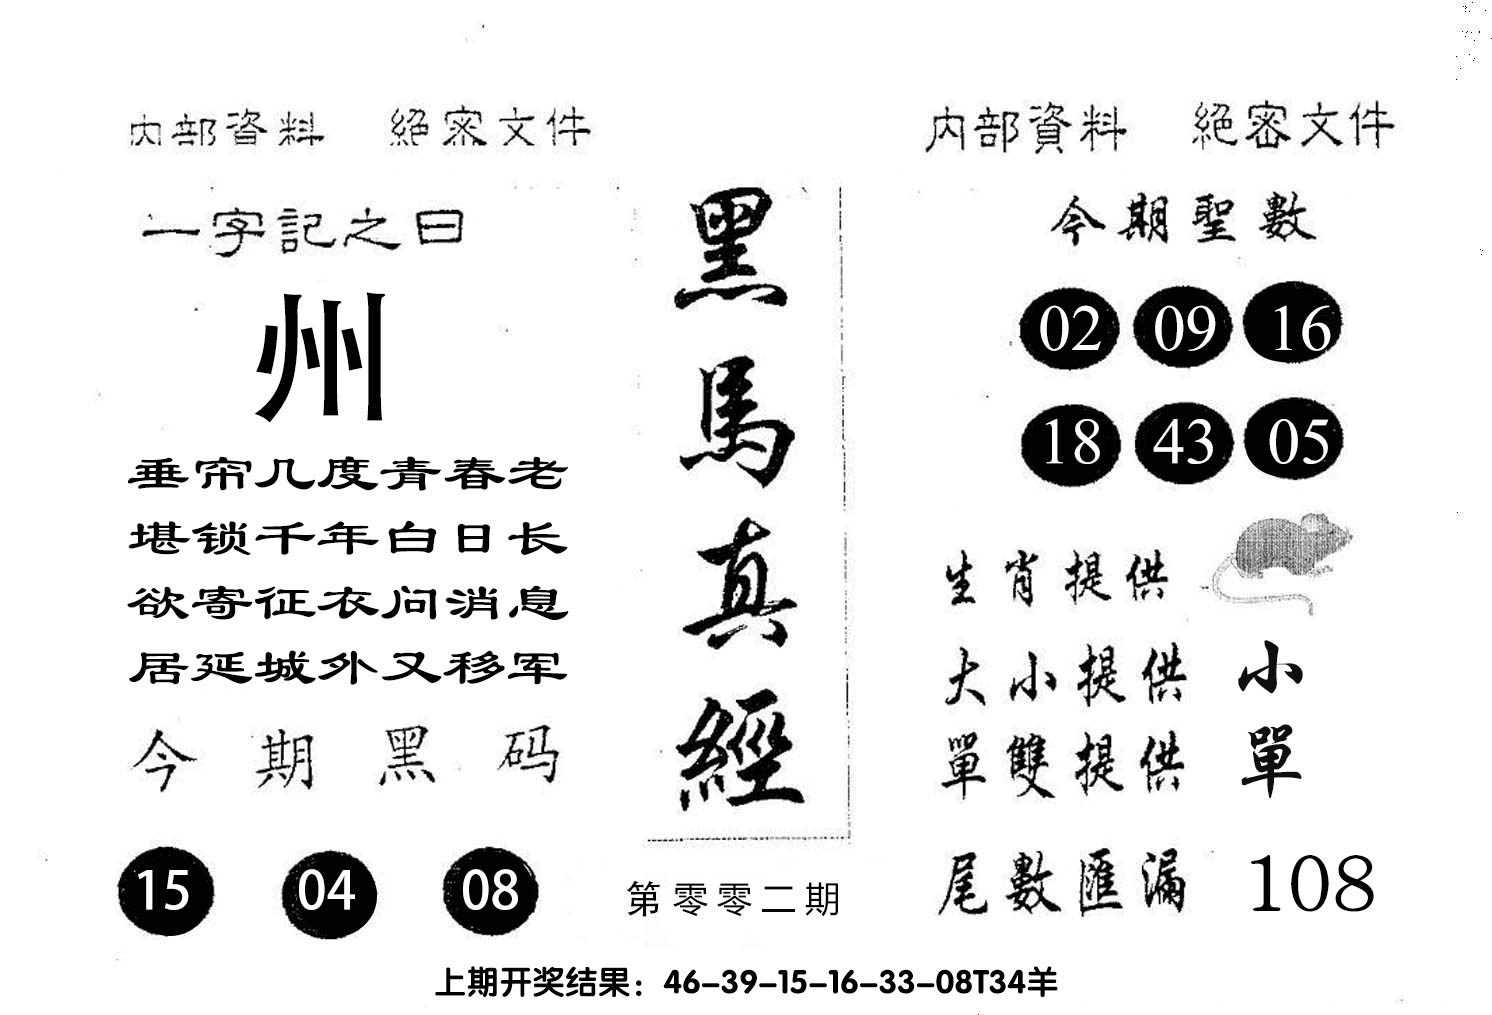 内部資料 絕密文件
一字記之曰
州
垂帘几度青春老
堪锁千年白日长
欲寄征衣问消息
居延城外又移军
今期黑码
15 04 08
黑馬真經
第零零二期
内部資料 絕密文件
今期聖數
02 09 16
18 43 05
生肖提供
大小提供 小
單雙提供 單
尾數匯漏 108
上期开奖结果：46-39-15-16-33-08T34羊